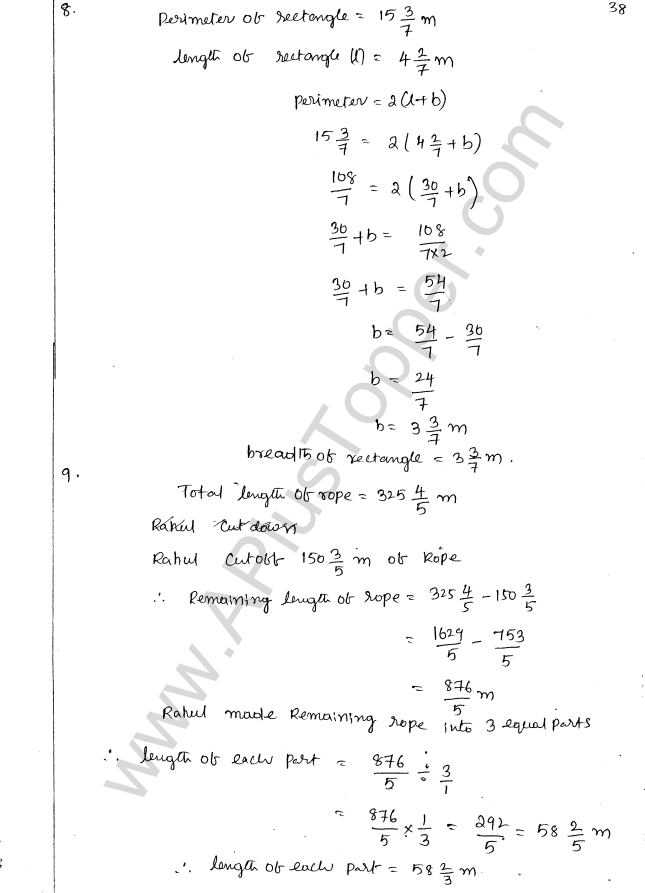 38
8.
Perimeter of rectangle = 15 3/7 m
length of rectangle (l) = 4 2/7 m
perimeter = 2(l+b)
15 3/7 = 2(4 2/7 + b)
108/7 = 2(30/7 + b)
30/7 + b = 108/7×2
30/7 + b = 54/7
b = 54/7 - 30/7
b = 24/7
b = 3 3/7 m
breadth of rectangle = 3 3/7 m.
9.
Total length of rope = 325 4/5 m
Rahul cut down
Rahul cutoff 150 3/5 m of Rope
∴ Remaining length of rope = 325 4/5 - 150 3/5
= 1629/5 - 753/5
= 876/5 m
Rahul made Remaining rope into 3 equal parts
∴ length of each part = 876/5 ÷ 3/1
= 876/5 × 1/3 = 292/5 = 58 2/5 m
∴ length of each part = 58 2/3 m.
www.APlusTopper.com